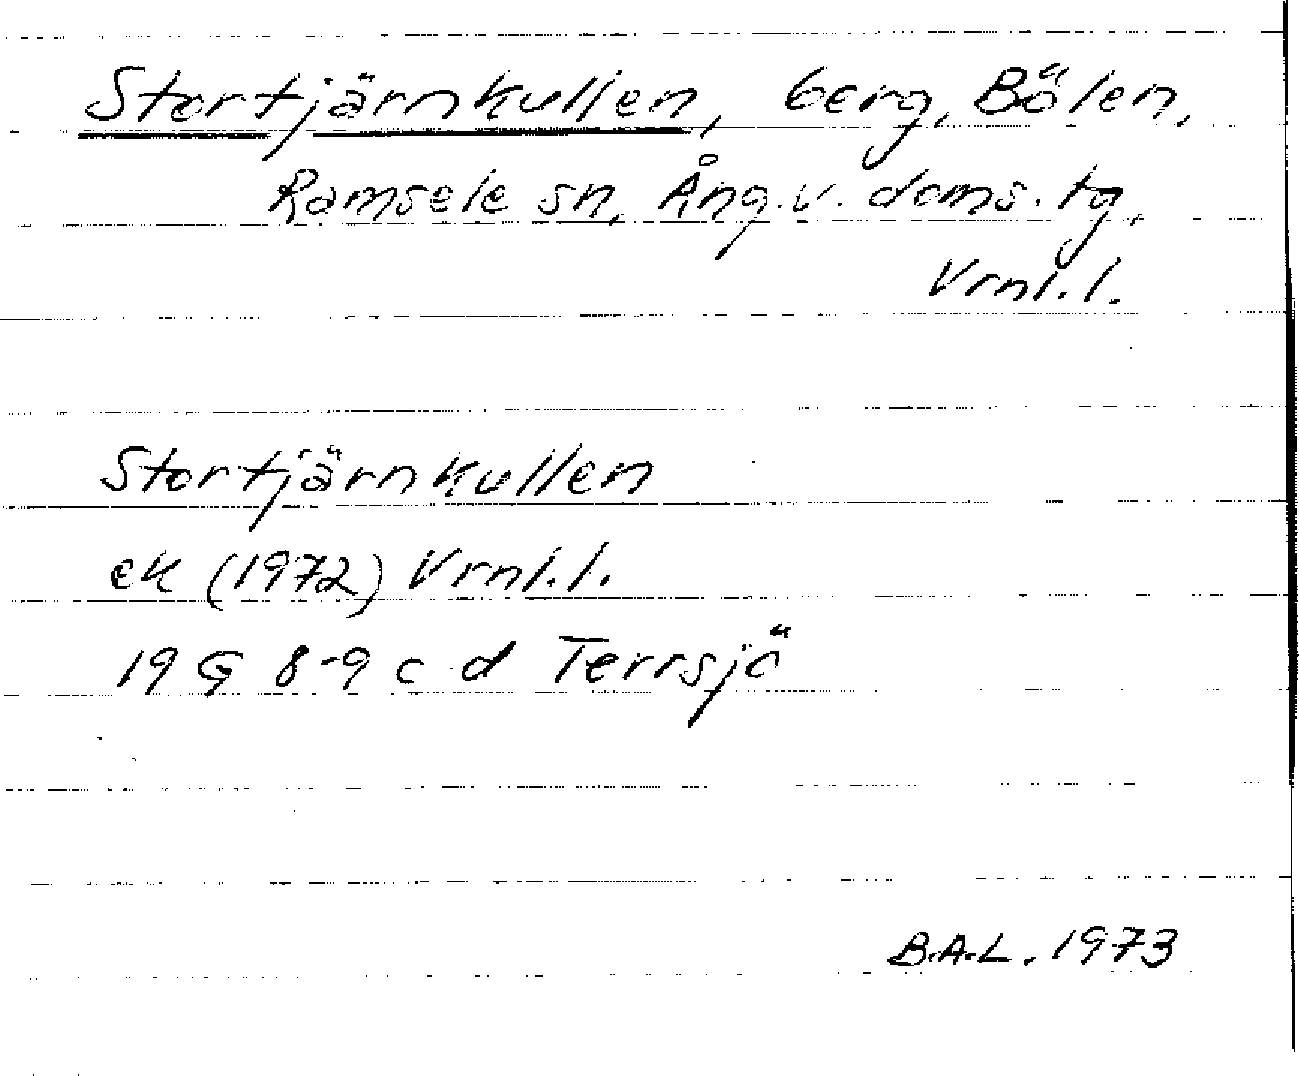 Stortjärnkullen, berg, Bölen,
Ramsele sn, Ång.v. doms. tg,
Vrnl.l.
Stortjärnkullen
ek (1972) Vrnl.l.
19 G 8-9 c-d Terrsjö
B.A.L. 1973